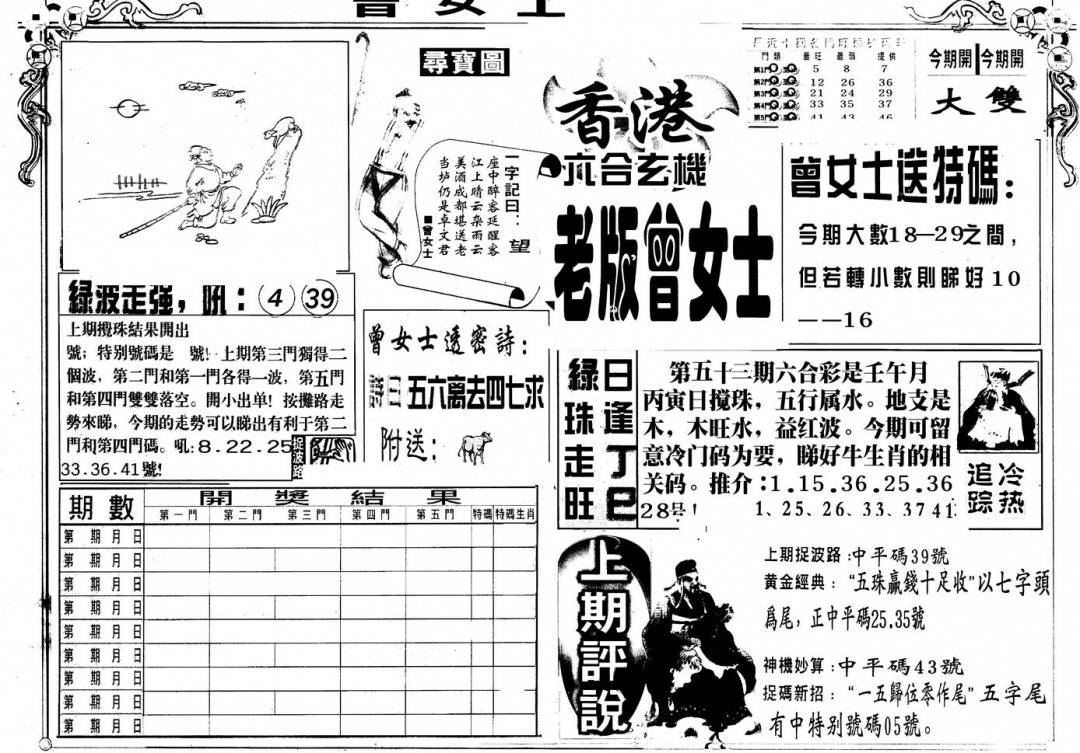 曾女士
尋寶圖
一字記曰：望
座中醉客延醒客
江上晴云杂雨云
美酒成都堪送老
当垆仍是卓文君
■曾女士
香港
六合玄機
老版曾女士
門類 番旺 最弱 提供
第1門 5 8 7
第2門 12 26 36
第3門 21 24 29
第4門 33 35 37
第5門 41 43 46
今期開 今期開
大 雙
曾女士送特碼：
今期大數18—29之間，
但若轉小數則睇好10
——16
綠波走强，吼：④ ㊴
上期攪珠結果開出
號；特别號碼是 號！上期第三門獨得二
個波，第二門和第一門各得一波，第五門
和第四門雙雙落空。開小出单！按攤路走
勢來睇，今期的走勢可以睇出有利于第二
門和第四門碼。吼:8.22.25
33.36.41號!
捉波路
曾女士透密詩：
詩曰 五六離去四七求
附送：
綠珠走旺
日逢丁巳
第五十三期六合彩是壬午月
丙寅日搅珠，五行属水。地支是
木，木旺水，益红波。今期可留
意冷门码为要，睇好牛生肖的相
关码。推介：1.15.36.25.36
28号! 1. 25. 26. 33. 37 41
追踪
冷热
期數 開獎結果
第一門 第二門 第三門 第四門 第五門 特碼 特碼生肖
第 期 月 日
第 期 月 日
第 期 月 日
第 期 月 日
第 期 月 日
第 期 月 日
第 期 月 日
第 期 月 日
第 期 月 日
上期評說
上期捉波路:中平碼39號
黄金經典："五珠赢錢十足收"以七字頭
爲尾，正中平碼25.35號
神機妙算:中平碼43號
捉碼新招："一五歸位零作尾"五字尾
有中特别號碼05號。